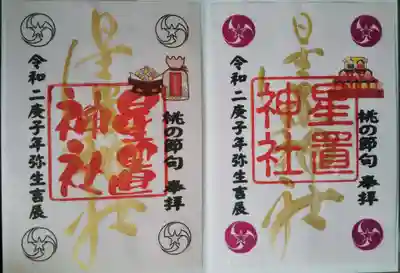 桃の節句 奉拝
星置神社
星置
神社
令和二庚子年弥生吉辰
桃の節句 奉拝
星置神社
星置
神社
令和二庚子年弥生吉辰